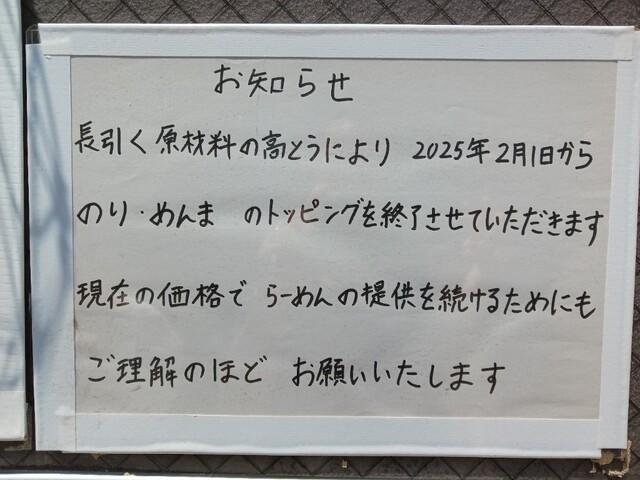 お知らせ
長引く原材料の高とうにより 2025年2月1日から
のり・めんま のトッピングを終了させていただきます
現在の価格で らーめんの提供を続けるためにも
ご理解のほど お願いいたします